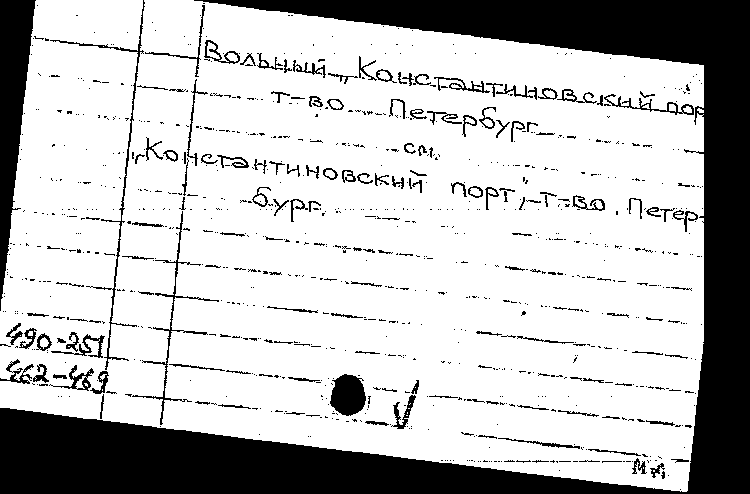 Вольный „Константиновский пор
т-во Петербург
см.
„Константиновский порт", т-во. Петер-
бург.
490-251
462-469
М.А.